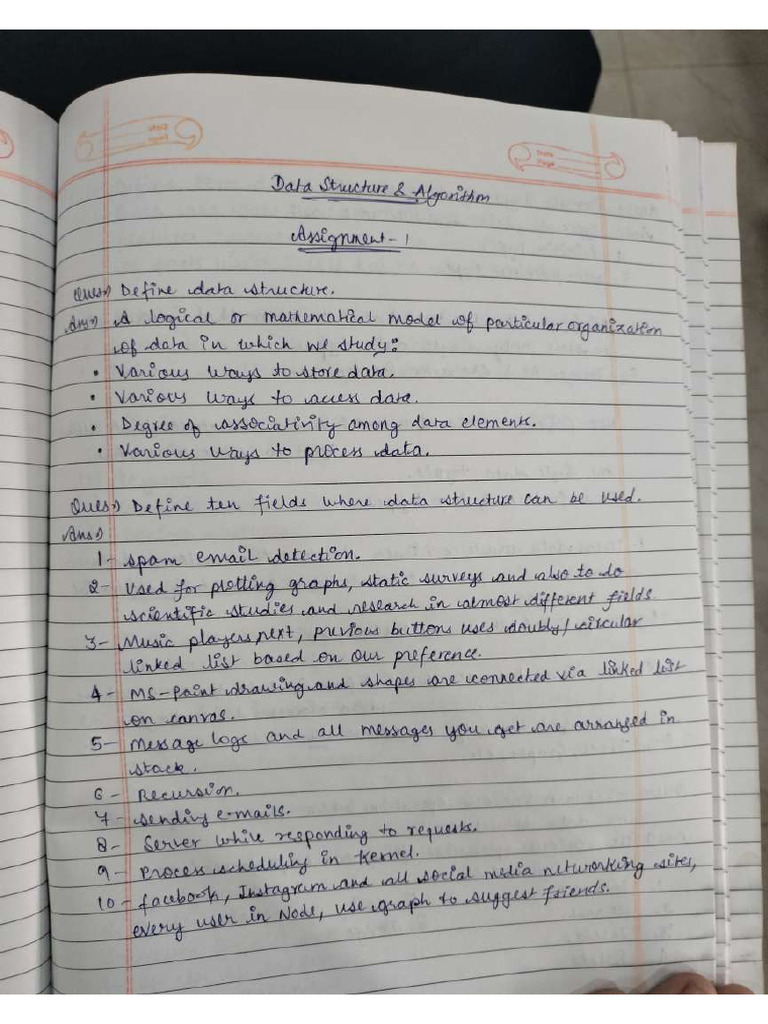 Data Structure & Algorithm
Assignment - 1
Ques:) Define data structure.
Ans:) A logical or mathematical model of particular organization
of data in which we study:
• Various ways to store data.
• Various ways to access data.
• Degree of associativity among data elements.
• Various ways to process data.
Ques:) Define ten fields where data structure can be used.
Ans:)
1- Spam email detection.
2- Used for plotting graphs, static surveys and also to do
scientific studies and research in almost different fields
3- Music players, next, previous buttons uses doubly/circular
linked list based on our preference.
4- MS-paint drawing and shapes are connected via linked list
on canvas.
5- Message logs and all messages you get are arranged in
stack.
6- Recursion.
7- Sending e-mails.
8- Server while responding to requests.
9- Process scheduling in kernel.
10- facebook, Instagram and all social media networking sites,
every user in Node, use graph to suggest friends.